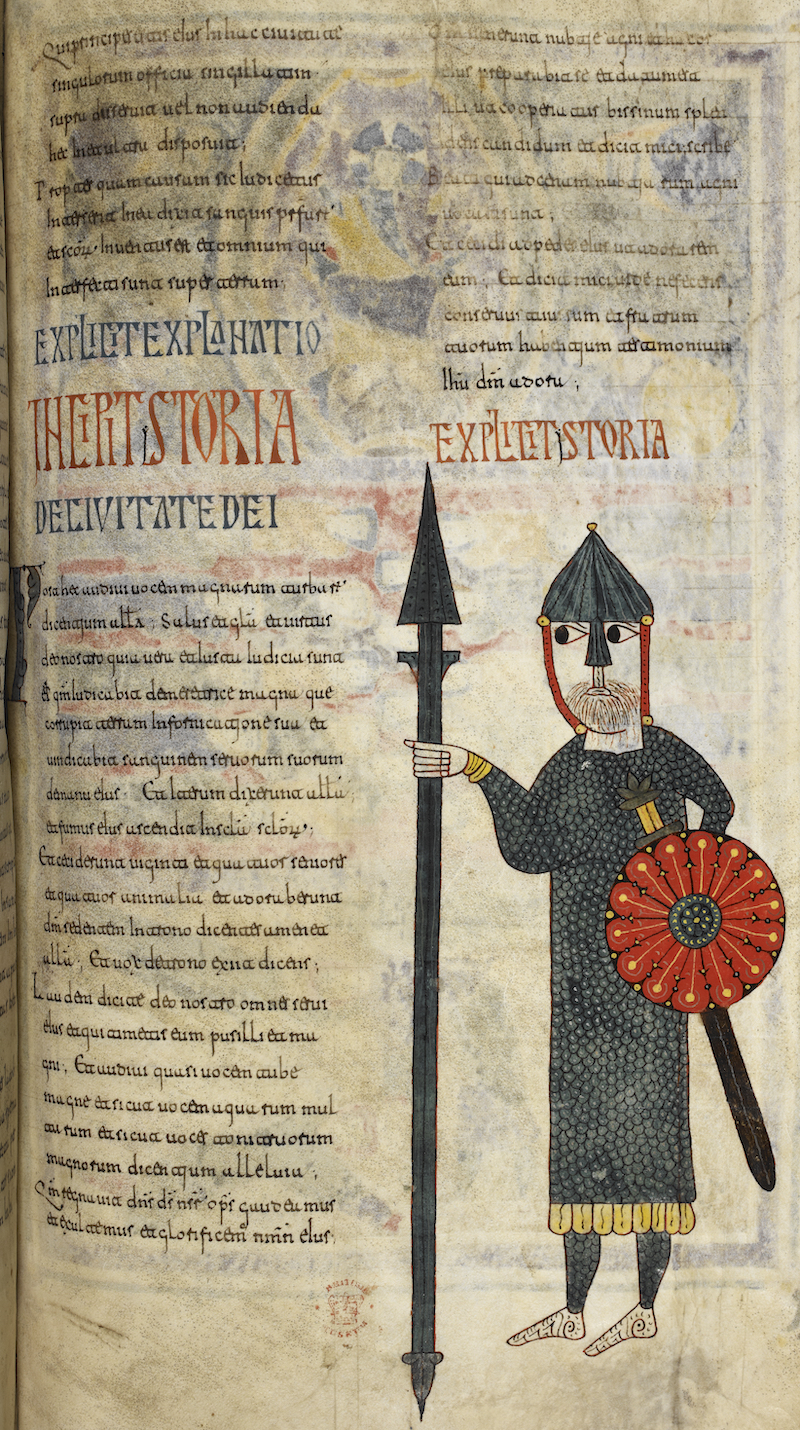 singulorum officia singillatim
supra disseruit uel non audienda
disposuit;
Propter quam causam sic iudicatur
sanguis prfetr
et scōr inuentus est et omnium qui
Interfecti sunt super terram;
EXPLICIT EXPLANATIO
INCIPIT ISTORIA
DE CIVITATE DEI
Post hec audiui uocem magnarum turbarr
dicentium allā; Salus et glā et uirtus
deo nostro quia uera et iusta iudicia sunt
iudicabit de meretrice magna que
corrupit terram In fornicatione sua et
uindicabit sanguinem seruorum suorum
de manu eius; Et iterum dixerunt allā
et fumus eius ascendit In sclā sclōr;
Et ceciderunt uiginti et quatuor seniores
et quatuor animalia et adoraberunt
dn̄m sedentem In trono dicentes amen et
allā; Et uox de trono exiit dicens;
Laudem dicite deo nostro omnes serui
eius et qui timetis eum pusilli et ma
gni; Et audiui quasi uocem tube
magne et sicut uocem aquarum mul
tarum et sicut uoces tonitruorum
magnorum dicentium alleluia;
Qm regnauit dn̄s dī nsr ops gaudeamus
et exultemus et glorificem nmn eius;
uenerunt nubtie agni et uxor
eius preparabit se et datum est
illi ut cooperiat bissinum splen
dens candidum et dicit mici scribe
Beati qui ad cenam nubtiarum agni
uocati sunt;
Et cecidi ad pedes eius ut adorarem
eum; Et dicit mici uide ne feceris
conseruus tuus sum et fratrum
tuorum habentium testimonium
Ihū dn̄m adora;
EXPLICIT ISTORIA